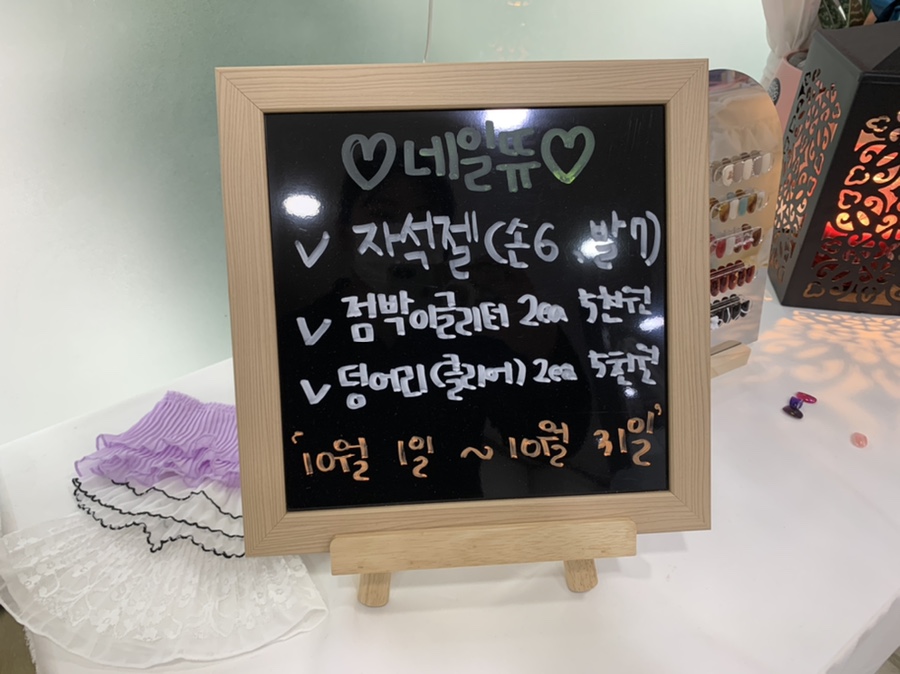 ♡네일뜌♡
✓ 자석젤(손6 발7)
✓ 점박이글리터 2ea 5천원
✓ 덩어리(클리어) 2ea 5천원
'10월 1일 ~ 10월 31일'